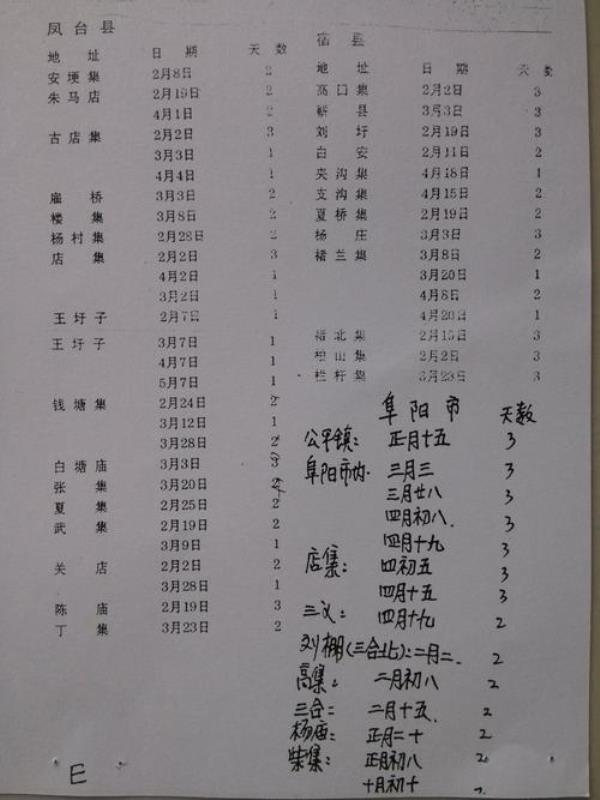 凤台县
地址 日期 天数
安埂集 2月8日 2
朱马店 2月19日 2
4月1日 2
古店集 2月2日 3
3月3日 1
4月4日 1
雇桥 3月3日 2
楼集 3月8日 2
杨村集 2月28日 2
店集 2月2日 3
4月2日 1
3月2日 1
王圩子 2月7日 1
王圩子 3月7日 1
4月7日 1
5月7日 1
钱塘集 2月24日 2
3月12日 1
3月28日 2
白塘庙 3月3日 3
张集 3月20日
夏集 2月25日 2
武集 2月19日 2
3月9日 1
关店 2月2日 2
3月28日 1
陈庙 2月19日 3
丁集 3月23日 2
E
宿县
地址 日期 天数
高口集 2月2日 3
蕲县 3月3日 3
刘圩 2月19日 3
白安 2月11日 2
夹沟集 4月18日 1
支沟集 4月15日 2
夏桥集 2月19日 2
杨庄 3月3日 3
褚兰集 3月8日 2
3月20日 1
4月8日 2
4月20日 1
褚北集 2月15日 3
柏山集 2月2日 3
栏杆集 3月23日 3
阜阳市 天数
公平镇: 正月十五 3
阜阳市内: 三月三 3
三月廿八 3
四月初八. 3
四月十九 3
店集: 四初五 3
四月十五 3
三义: 四月十九 2
刘棚(三合北):二月二. 2
高集: 二月初八 2
三合: 二月十五. 2
杨庙: 正月二十 2
柴集: 正月初八 2
十月初十